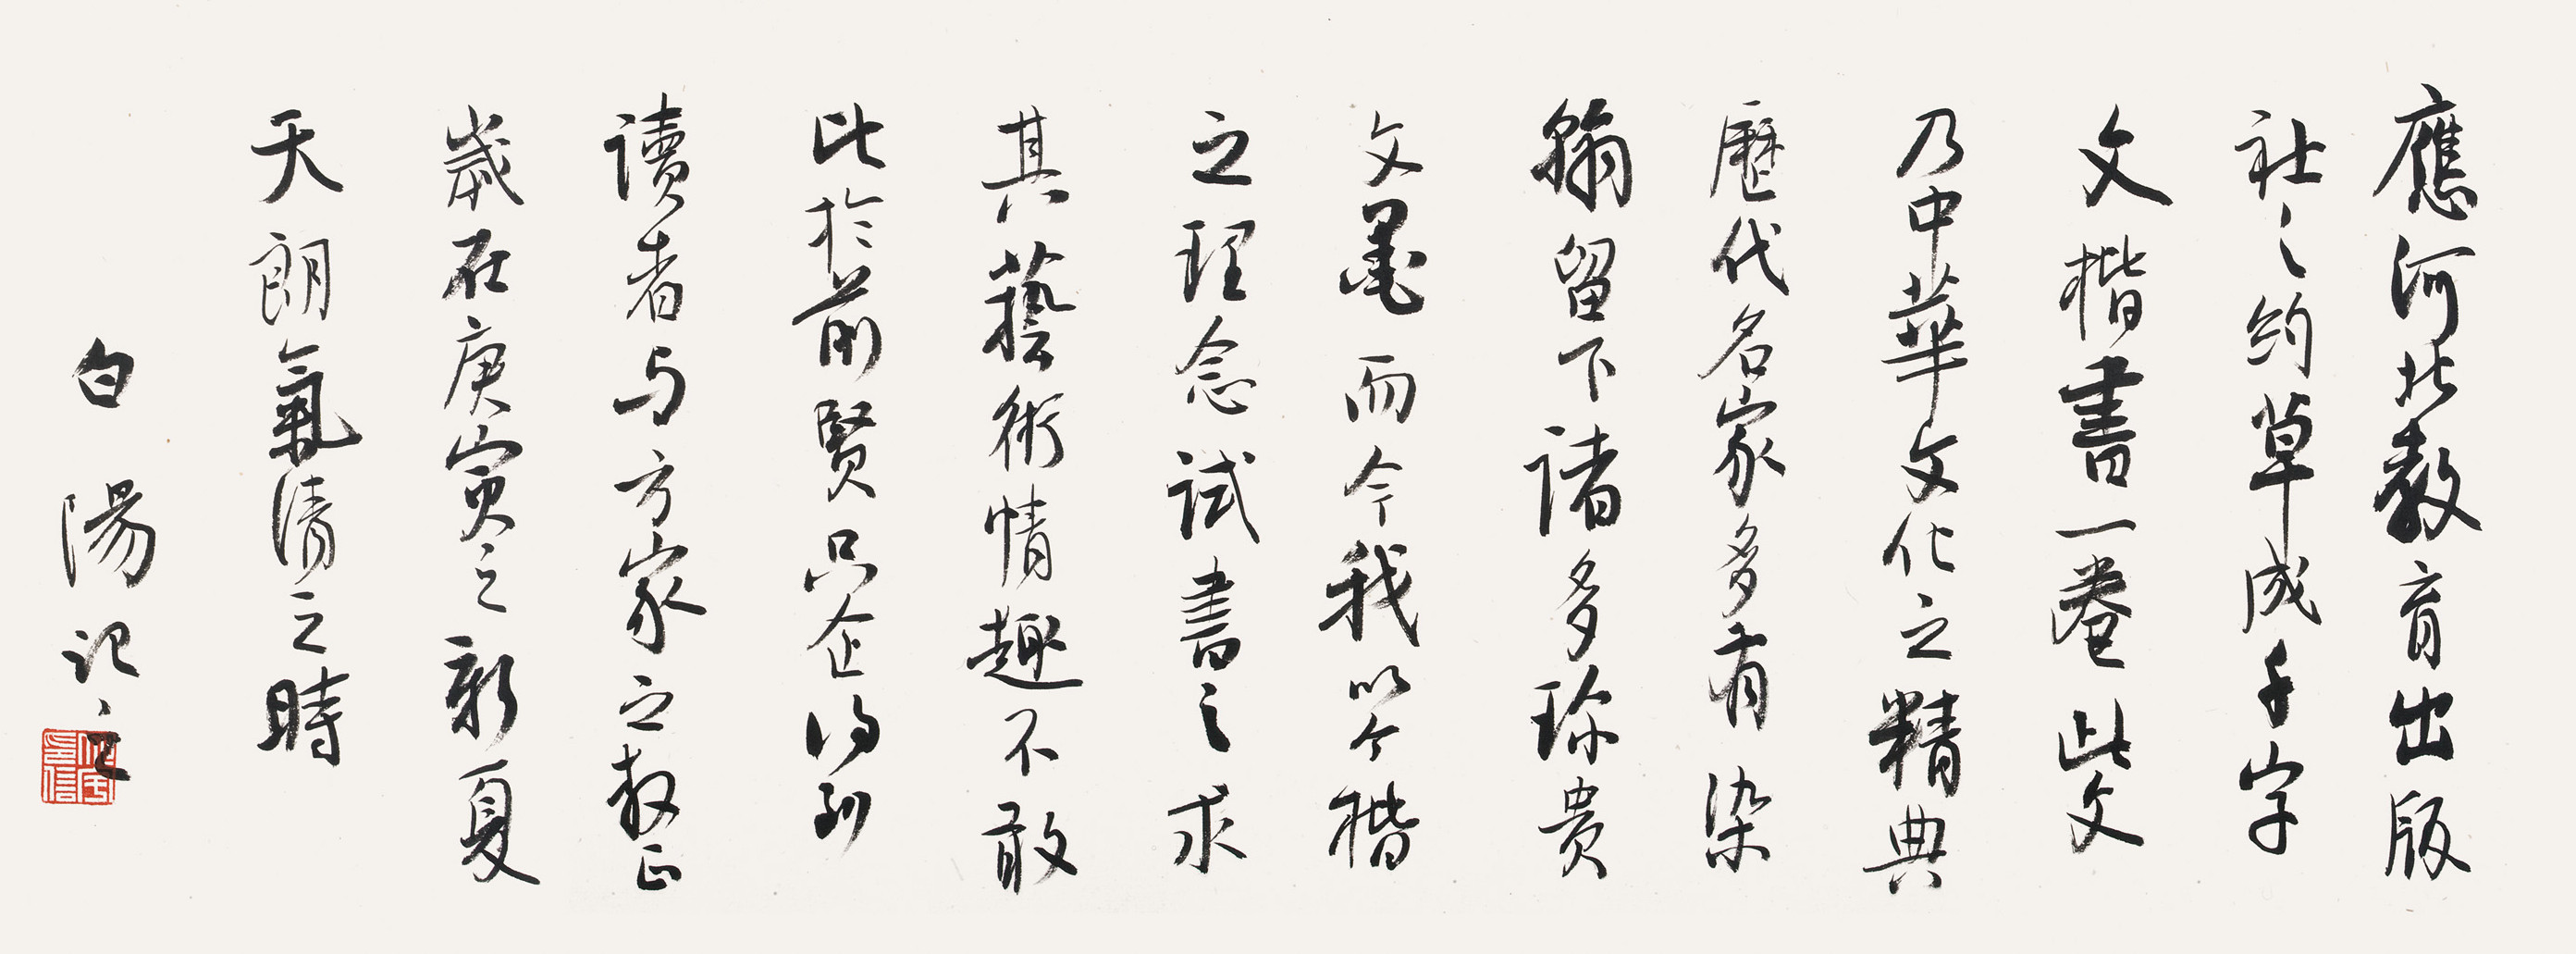 應河北教育出版
社之約草成千字
文楷書一卷此文
乃中華文化之精典
歷代名家多有染
翰留下諸多珎貴
文墨而今我以今楷
之理念試書之求
其藝術情趣不敢
比於前賢只企得到
讀者与方家之教正
歲在庚寅之新夏
天朗氣清之時
白陽記之